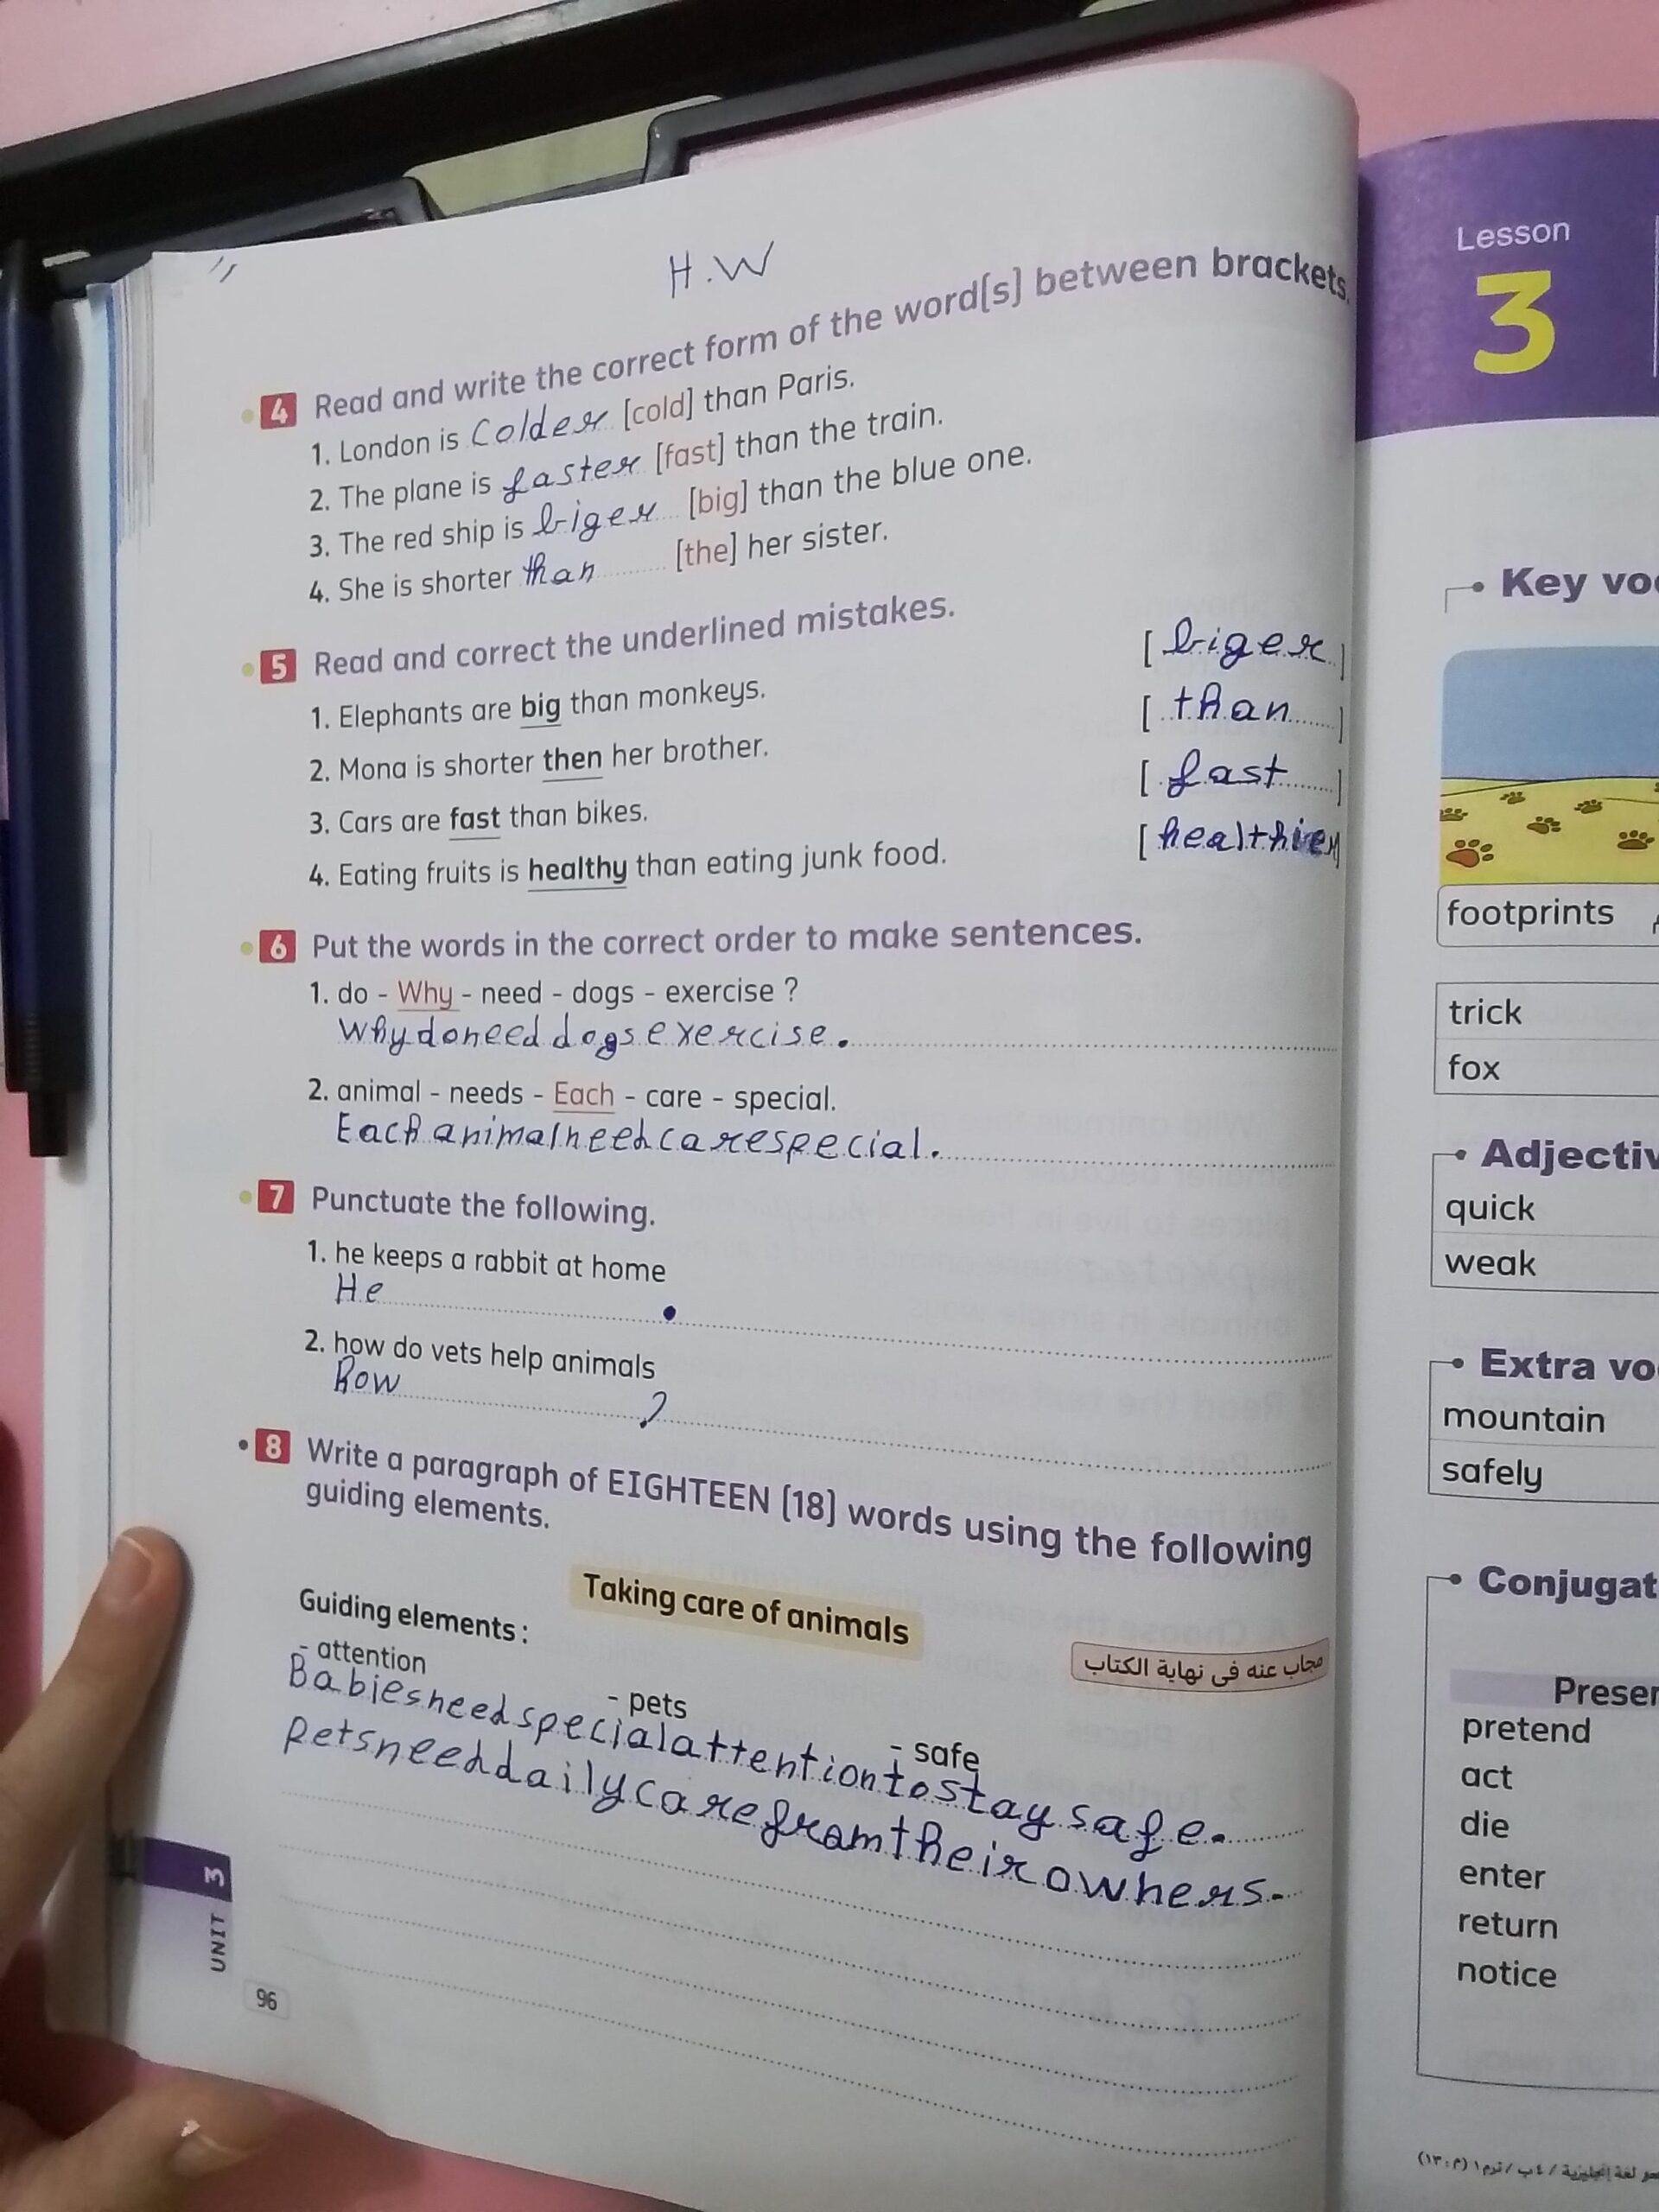 H.W
4 Read and write the correct form of the word[s] between brackets.
1. London is Colder [cold] than Paris.
2. The plane is faster [fast] than the train.
3. The red ship is biger [big] than the blue one.
4. She is shorter than [the] her sister.
5 Read and correct the underlined mistakes.
1. Elephants are big than monkeys. [biger]
2. Mona is shorter then her brother. [than]
3. Cars are fast than bikes. [fast]
4. Eating fruits is healthy than eating junk food. [healthier]
6 Put the words in the correct order to make sentences.
1. do - Why - need - dogs - exercise ?
Why do need dogs exercise.
2. animal - needs - Each - care - special.
Each animal need care special.
7 Punctuate the following.
1. he keeps a rabbit at home
He .
2. how do vets help animals
How ?
8 Write a paragraph of EIGHTEEN [18] words using the following
guiding elements.
Taking care of animals
Guiding elements :
مجاب عنه فى نهاية الكتاب
- attention - pets - safe
Babies need special attention to stay safe.
Pets need daily care fram their owners.
UNIT 3
96
Lesson
3
Key vo
footprints
trick
fox
Adjectiv
quick
weak
Extra vo
mountain
safely
Conjugat
Preser
pretend
act
die
enter
return
notice
لغة إنجليزية / ٤ ب / ترم ١ (م : ١٣)